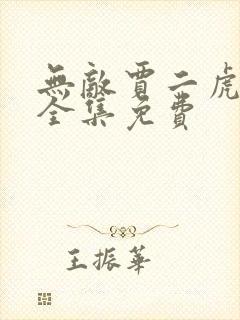 無敵賈二虎
全集免費
王振華